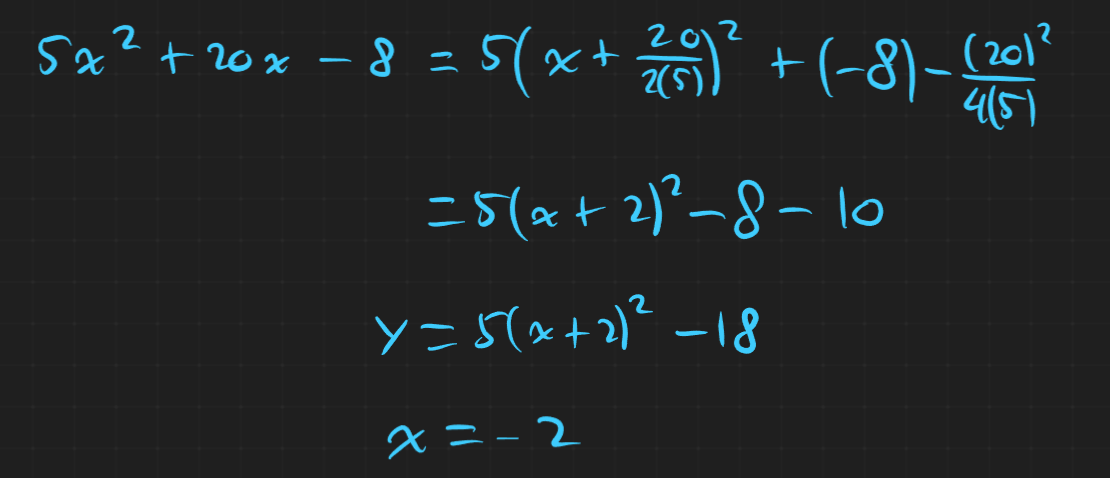 5x² + 20x - 8 = 5(x + 20/2(5))² + (-8) - (20)²/4(5)
= 5(x + 2)² - 8 - 10
y = 5(x + 2)² - 18
x = -2